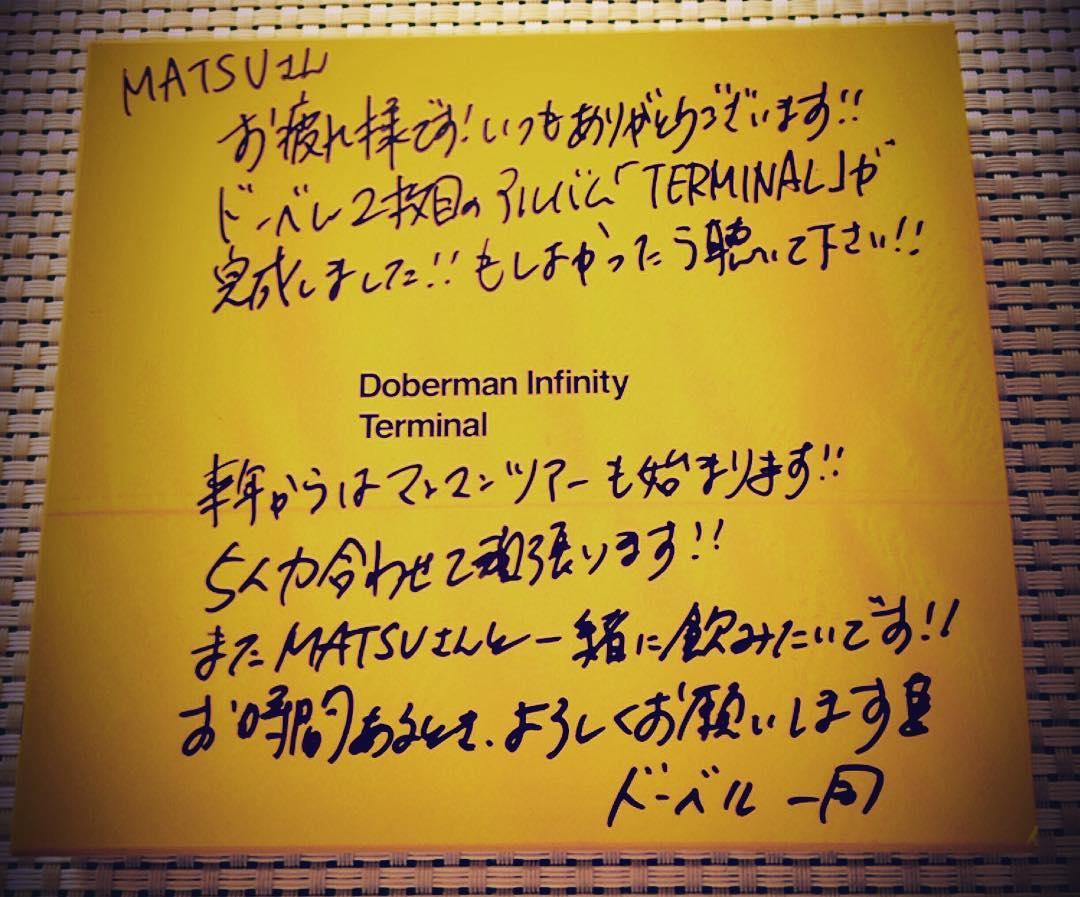 MATSUさん
お疲れ様です！いつもありがとうございます！！
ドーベル２枚目のアルバム「TERMINAL」が
完成しました！！もしよかったら聴いて下さい！！
Doberman Infinity
Terminal
来年からはマンマンツアーも始まります！！
5人力合わせて頑張ります！！
またMATSUさんと一緒に飲みたいです！！
お時間あるとき、よろしくお願いします！！
ドーベル一同